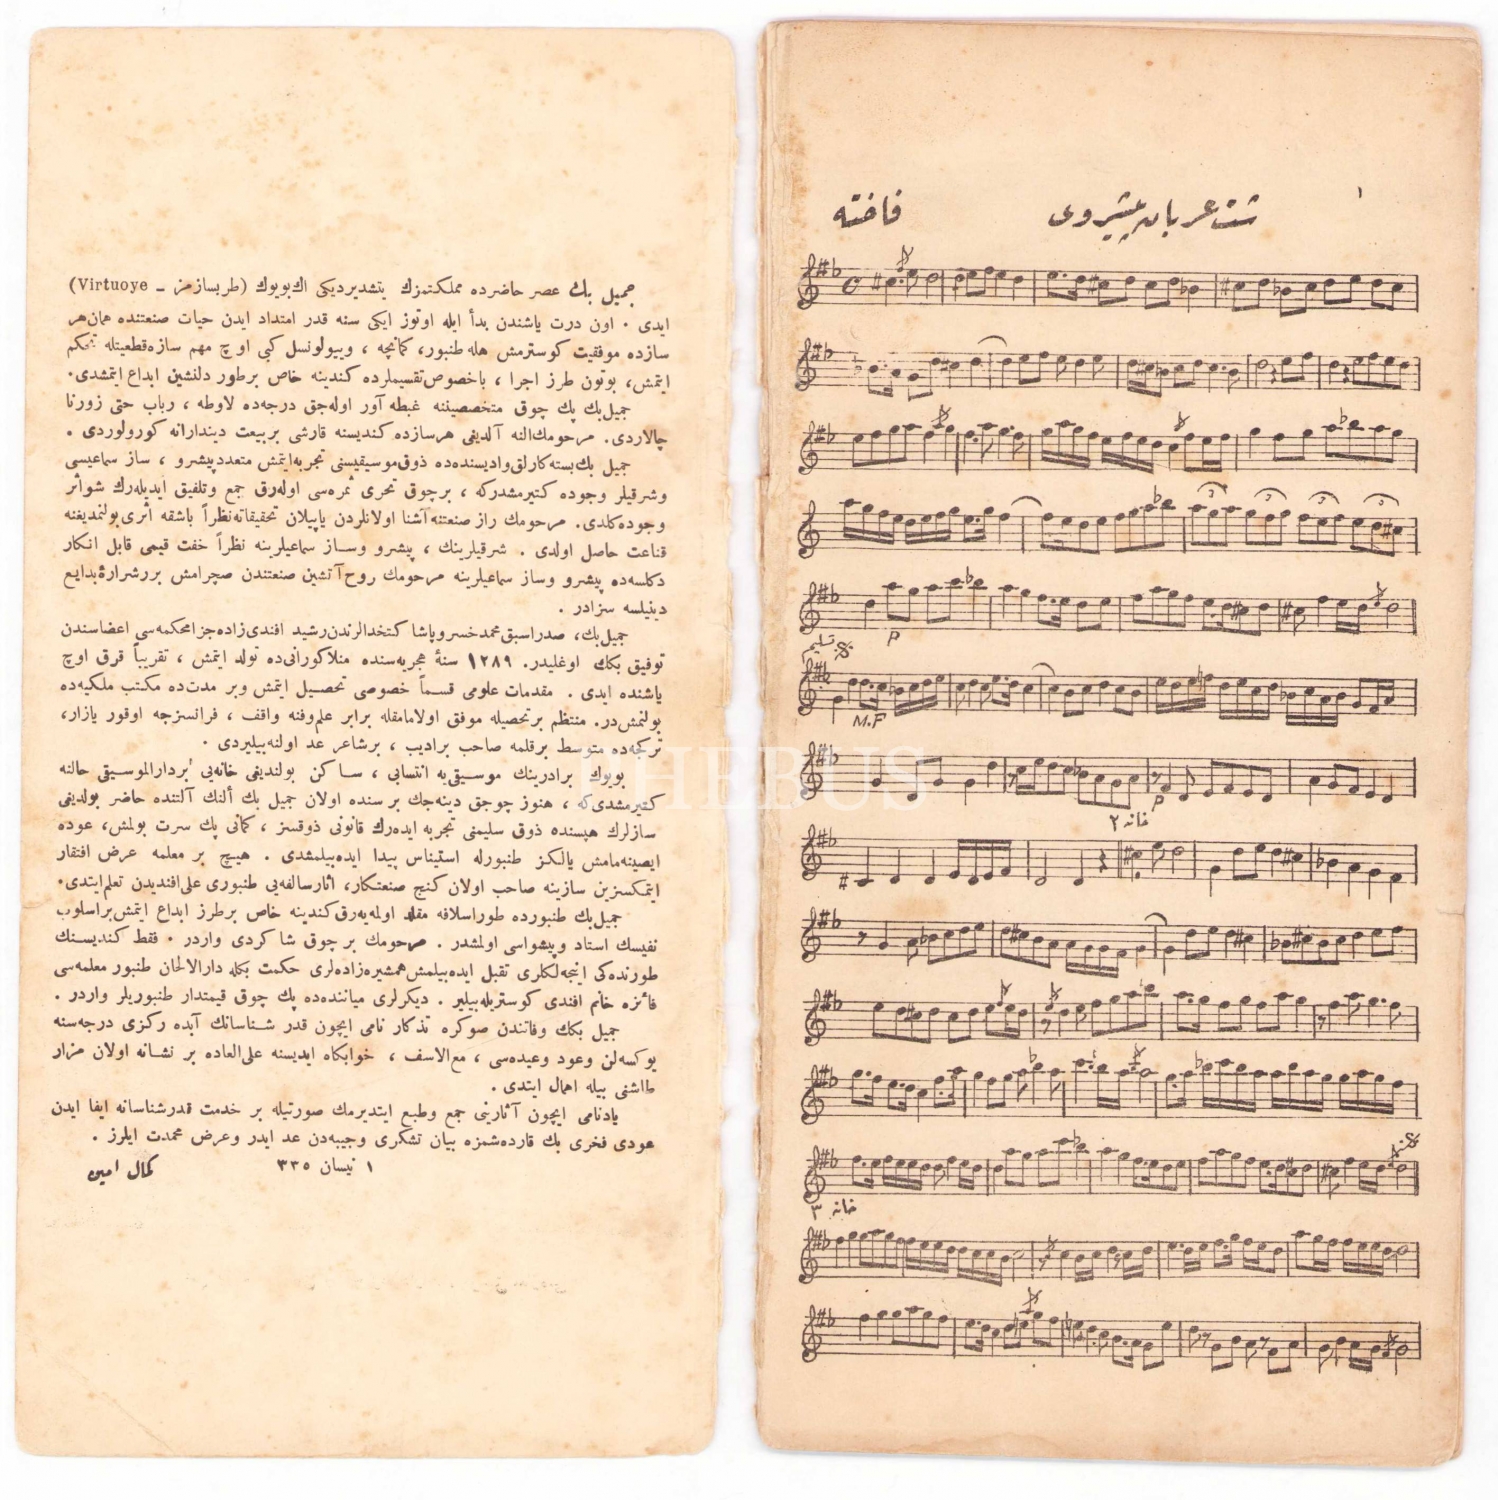 جميل بك عصر حاضرده مملكتمزك يتشديرديكى اك بويوك (طربساز مز ـ Virtuoye)
ايدى . اون درت ياشندن بدأ ايله اوتوز ايكى سنه قدر امتداد ايدن حيات صنعتنده همان هر
سازده موفقيت كوسترمش هله طنبور، كمانچه ، وييولونسل كبى اوچ مهم سازه قطعيتله تحكم
ايتمش، بوتون طرز اجرا ، باخصوص تقسيملرده كندينه خاص برطور دلنشين ابداع ايتمشدى.
جميل بك پك چوق متخصصيننه غبطه آور اوله جق درجه ده لاوطه ، رباب حتى زورنا
چالاردى. مرحومك النه آلديغى هرسازده كنديسنه قارشى بربيعت ديندارانه كورولوردى .
جميل بك بسته كارلق واديسنده ده ذوق موسيقيسنى تجربه ايتمش متعدد پيشرو ، ساز سماعيسى
وشرقيلر وجوده كتيرمشدركه ، برچوق تحرى ثمره سى اوله رق جمع وتلفيق ايديله رك شو اثر
وجوده كلدى. مرحومك راز صنعتنه آشنا اولانلردن ياپيلان تحقيقاته نظراً باشقه اثرى بولنمديغنه
قناعت حاصل اولدى . شرقيلرينك ، پيشرو وساز سماعيلرينه نظراً خفت قيمى قابل انكار
دكلسه ده پيشرو وساز سماعيلرينه مرحومك روح آتشين صنعتندن صچرامش بررشرارۀ بدايع
دينيلسه سزادر .
جميل بك، صدر اسبق محمد خسرو پاشا كتخدالرندن رشيد افندى زاده جزا محكمه سى اعضاسندن
توفيق بكك اوغليدر. ١٢٨٩ سنۀ هجريه سنده منلا كورانى ده تولد ايتمش ، تقريباً قرق اوچ
ياشنده ايدى . مقدمات علومى قسماً خصوصى تحصيل ايتمش وبر مدت ده مكتب ملكيه ده
بولنمش در. منتظم برتحصيله موفق اولامامقله برابر علم وفنه واقف ، فرانسزجه اوقور يازار،
تركجه ده متوسط برقلمه صاحب براديب ، برشاعر عد اولنه بيليردى .
بويوك برادرينك موسيقى يه انتسابى ، ساكن بولنديغى خانه يى بردارالموسيقى حالنه
كتيرمشدى كه ، هنوز چوجق دينه جك بر سنده اولان جميل بك ألنك آلتنده حاضر بولديغى
سازلرك هپسنده ذوق سليمنى تجربه ايده رك قانونى ذوقسز ، كمانى پك سرت بولمش، عوده
ايصينه مامش يالكز طنبورله استيناس پيدا ايده بيلمشدى . هيچ بر معلمه عرض افتقار
ايتمكسزين سازينه صاحب اولان كنج صنعتكار، آثار سالفه يى طنبورى على افنديدن تعلم ايتدى.
جميل بك طنبورده طور اسلافه مقلد اولمه يه رق كندينه خاص برطرز ابداع ايتمش براسلوب
نفيسك استاد وپيشواسى اولمشدر . مرحومك بر چوق شاكردى واردر . فقط كنديسنك
طورنده كى اينجه لكلرى تقبل ايده بيلمش همشيره زاده لرى حكمت بكله دارالالحان طنبور معلمه سى
فائزه خانم افندى كوستريله بيلير . ديكرلرى مياننده ده پك چوق قيمتدار طنبوريلر واردر .
جميل بكك وفاتندن صوكره تذكار نامى ايچون قدر شناسانك آبده ركزى درجه سنه
يوكسه لن وعود وعيده سى ، مع الاسف ، خوابكاه ابديسنه على العاده بر نشانه اولان مزار
طاشنى بيله اهمال ايتدى .
يادنامى ايچون آثارينى جمع وطبع ايتديرمك صورتيله بر خدمت قدرشناسانه ايفا ايدن
عودى فخرى بك قارده شمزه بيان تشكرى وجيبه دن عد ايدر وعرض محمدت ايلرز .
١ نيسان ٣٣٥
كمال امين
١
شت عربان پيشروى
فاخته
3 3 3 3
P
تسليم
M.F
P
خانه ٢
خانه ٣
PHEBUS